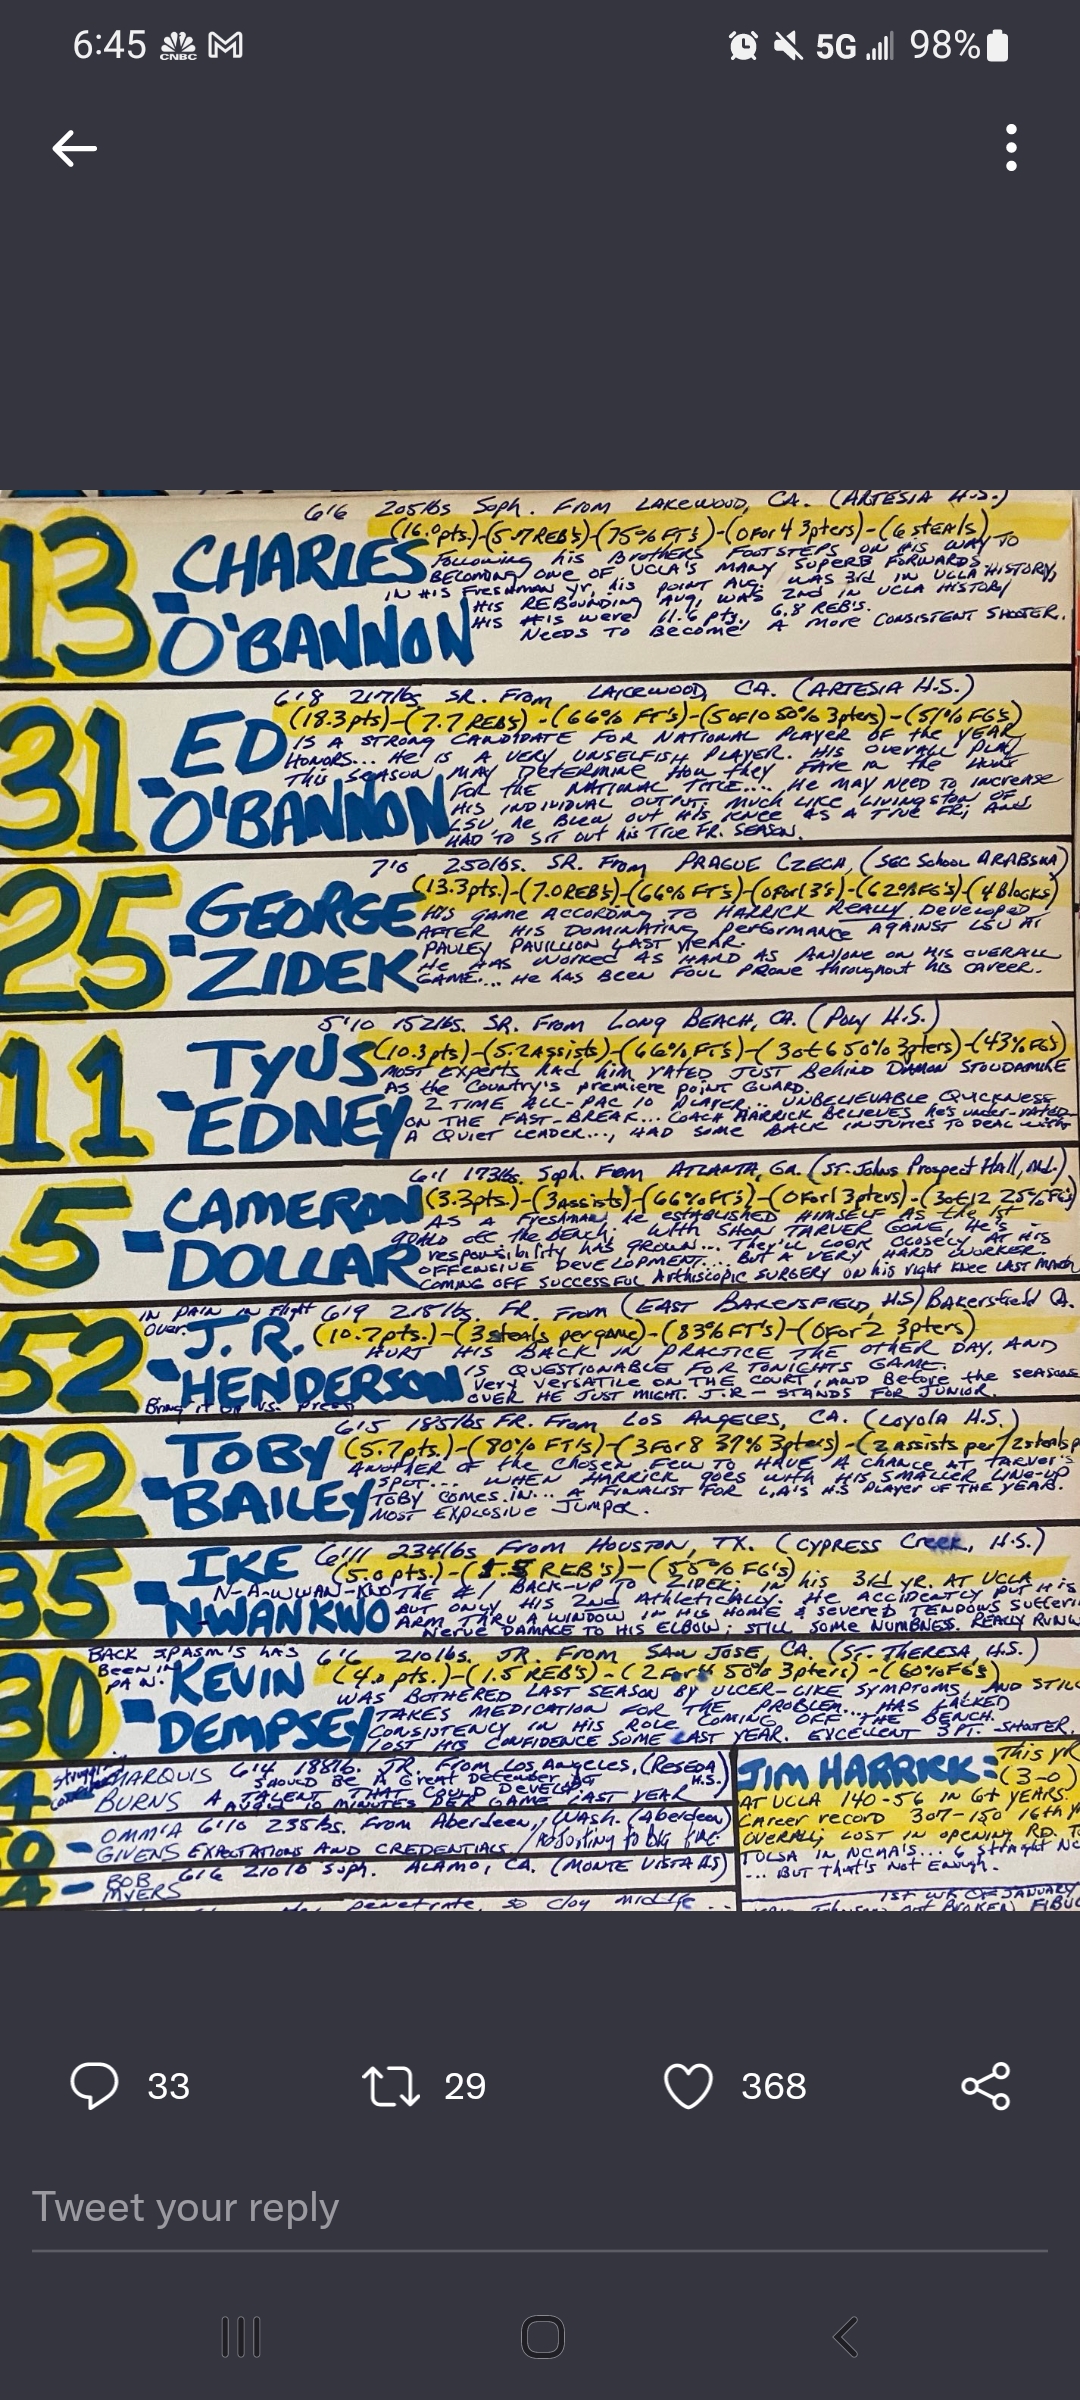 6:45 CNBC M 5G 98%
6'6 205lbs Soph. From LAKEWOOD, CA. (ARTESIA H.S.)
(16.0pts.)-(5.7REB's)-(75% FT's)-(0For 4 3pters)-(6 steals)
13 - CHARLES O'BANNON
Following his Brothers FOOTSTEPS ON his WAY TO
BECOMING ONE OF UCLA'S MANY SUPERB FORWARDS
IN HIS FRESHMAN yr, his POINT AVG. WAS 3rd IN UCLA HISTORY,
HIS REBOUNDING AVG, WAS 2nd IN UCLA HISTORY
HIS #'s were 11.6 pts, 6.8 REB'S.
NEEDS TO BECOME A MORE CONSISTENT SHOOTER.
6'8 217lbs SR. From LAKEWOOD, CA. (ARTESIA H.S.)
(18.3pts)-(7.7 REB's)-(66% FT's)-(5 of 10 50% 3pters)-(51% FG's)
31 - ED O'BANNON
IS A STRONG CANDIDATE FOR NATIONAL PLAYER OF the YEAR
HONORS... He IS A VERY UNSELFISH PLAYER. HIS OVERALL PLAY
THIS SEASON MAY DETERMINE How they FARE in the HUNT
FOR the NATIONAL TITLE.... He MAY NEED TO INCREASE
HIS INDIVIDUAL OUTPUT. MUCH LIKE LIVINGSTON OF
LSU, he BLEW OUT HIS KNEE AS A TRUE FR, AND
HAD TO SIT OUT his TRUE FR. SEASON.
7'0 250lbs. SR. From PRAGUE CZECH, (SEC School ARABSKA)
(13.3pts.)-(7.0REB's)-(66% FT's)-(0For13's)-(62%FG's)-(4 Blocks)
25 - GEORGE ZIDEK
HIS GAME ACCORDING TO HARRICK REALLY DEVELOPED
AFTER HIS DOMINATING PERFORMANCE AGAINST LSU AT
PAULEY PAVILLION LAST YEAR.
He HAS WORKED AS HARD AS ANYONE ON HIS OVERALL
GAME... He HAS BEEN FOUL PRONE throughout his CAREER.
5'10 152lbs. SR. From LONG BEACH, CA. (Poly H.S.)
(10.3pts)-(5.2Assists)-(66%FT's)-(3of6 50% 3pters)-(43%FG's)
11 - TYUS EDNEY
MOST EXPERTS HAD him RATED JUST BEHIND DAMON STOUDAMIRE
AS the Country's premiere point GUARD.
2 TIME ALL-PAC 10 PLAYER... UNBELIEVABLE QUICKNESS
ON THE FAST-BREAK... COACH HARRICK BELIEVES he's under-rated
A QUIET LEADER..., HAD SOME BACK INJURIES TO DEAL WITH
6'1 173lbs. Soph. From ATLANTA, GA. (ST. Johns Prospect Hall, Md.)
(3.3pts.)-(3Assists)-(66%FT's)-(0For1 3pters)-(3of12 25%FG's)
5 - CAMERON DOLLAR
AS A Freshman, he ESTABLISHED HIMSELF AS the 1st
GUARD OFF the BENCH. WITH SHON TARVER GONE, He's
responsibility HAS GROWN... They'll LOOK CLOSELY AT HIS
OFFENSIVE DEVELOPMENT... BUT A VERY HARD WORKER.
COMING OFF SUCCESSFUL Arthiscopic SURGERY ON his right Knee LAST March
IN PAIN IN Flight Over. 6'9 218lbs, FR. From (EAST BAKERSFIELD, H.S) Bakersfield CA.
(10.7pts.)-(3steals pergame)-(83%FT's)-(0For2 3pters)
52 - J.R. HENDERSON
HURT HIS BACK IN PRACTICE THE OTHER DAY, AND
IS QUESTIONABLE FOR TONIGHTS GAME.
Very VERSATILE ON THE COURT, AND Before the seasons
OVER HE JUST MIGHT. J.R - STANDS FOR JUNIOR.
Bring it up vs. press
6'5 185lbs FR. From LOS ANGELES, CA. (Loyola H.S.)
(5.7pts.)-(80% FT's)-(3For8 37% 3pters)-(2 assists per/2steals p
12 - TOBY BAILEY
ANOTHER OF the CHOSEN FEW TO HAVE A CHANCE AT TARVER'S
SPOT... WHEN HARRICK GOES WITH HIS SMALLER LINE-UP
TOBY COMES IN... A FINALIST FOR L.A'S H.S PLAYER OF THE YEAR.
MOST EXPLOSIVE JUMPER.
6'11 234lbs From HOUSTON, TX. (CYPRESS Creek, H.S.)
(5.0pts.)-( REB's)-(55% FG's)
35 - IKE NWANKWO
N-A-WWAN-KWO
THE #1 BACK-UP TO ZIDEK, IN his 3rd YR. AT UCLA
BUT ONLY HIS 2nd Athletically. He ACCIDENTLY PUT HIS
ARM THRU A WINDOW IN HIS HOME & severed TENDONS Sufferi
Nerve DAMAGE TO HIS ELBOW; STILL SOME NUMBNESS. REALLY RUNS
BACK SPASM'S HAS BEEN IN PAIN. 6'6 210lbs. JR. From SAN JOSE, CA. (ST. THERESA, H.S.)
(4.0 pts.)-(1.5 REB's)-(2For4 50% 3pters)-(60%FG's)
30 - KEVIN DEMPSEY
WAS BOTHERED LAST SEASON BY ULCER-LIKE SYMPTOMS, AND STILL
TAKES MEDICATION FOR THE PROBLEM... HAS LACKED
CONSISTENCY IN HIS ROLE COMING OFF THE BENCH.
LOST HIS CONFIDENCE SOME LAST YEAR. EXCELLENT 3 PT. SHOOTER.
4 MARQUIS BURNS 6'4 188lb. JR. From LOS ANGELES, (RESEDA H.S.)
SHOULD BE A Great Defender,
A TALENT THAT COULD DEVELOP
AVG'D 10 MINUTES PER GAME LAST YEAR
0 - OMM'A GIVENS 6'10 235lbs. From Aberdeen, Wash. (Aberdeen)
EXPECTATIONS AND CREDENTIALS / Adjusting to big time
4 - BOB MYERS 6'6 210lb Soph. ALAMO, CA. (MONTE VISTA HS)
penetrate, so clog middle...
JIM HARRICK: This yR (3-0)
AT UCLA 140-56 IN 6+ YEARS.
Career record 307-150 16th y
OVERALL; LOST IN OPENING RD. T
TULSA IN NCAA'S... 6 straight NC
... BUT That's Not Enough.
1ST WK OF JANUARY
33 29 368
Tweet your reply